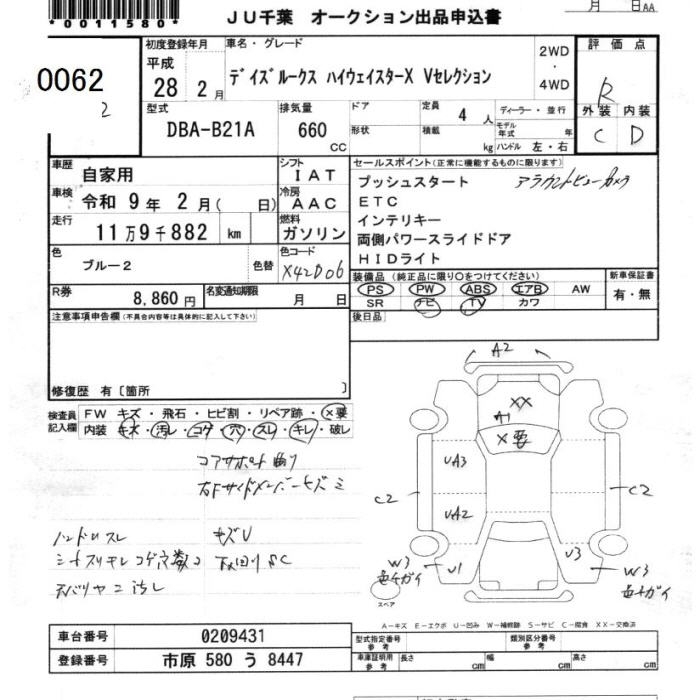 *0011580*
JU千葉 オークション出品申込書
月 日AA
0062
2
初度登録年月
平成
28 2 月
車名・グレード
デイズルークス ハイウェイスターX Vセレクション
2WD
・
4WD
評価点
R
型式
DBA-B21A
排気量
660
CC
ドア
形状
定員
4 人
積載
kg
ディーラー・並行
モデル年式 年
ハンドル 左・右
外装 内装
C D
車歴
自家用
シフト
IAT
車検
令和 9年 2月( 日)
冷房
AAC
走行
11万9千882 km
燃料
ガソリン
色
ブルー2
色替
色コード
X42D06
R券
8,860円
名変通知期限
月 日
セールスポイント(正常に機能するものに限ります)
プッシュスタート アラウンドビューカメラ
ETC
インテリキー
両側パワースライドドア
HIDライト
装備品 (純正品に限り○をつけてください)
PS PW ABS エアB AW
SR ナビ TV カワ
新車保証書
有・無
後日品
注意事項申告欄(不具合内容等は具体的に記入して下さい)
修復歴 有〔箇所 〕
検査員記入欄
FW キズ・飛石・ヒビ割・リペア跡・×要
内装 キズ・汚レ・コゲ・穴・スレ・キレ・破レ
コアサポート曲り
右Fサイドメンバーキズミ
ハンドルスレ キズU
シートスリキレコゲ穴数コ 下回りSC
A2
XX
A1
×要
UA3
UA2
C2
C2
W3
色チガイ
U1
U3
W3
色チガイ
スペア
A-キズ E-エクボ U-凹み W-補修跡 S-サビ C-腐食 XX-交換済
車台番号 0209431
登録番号 市原 580 う 8447
型式指定番号
参考
類別区分番号
参考
車庫証明用
参考
長さ cm 幅 cm 高さ cm